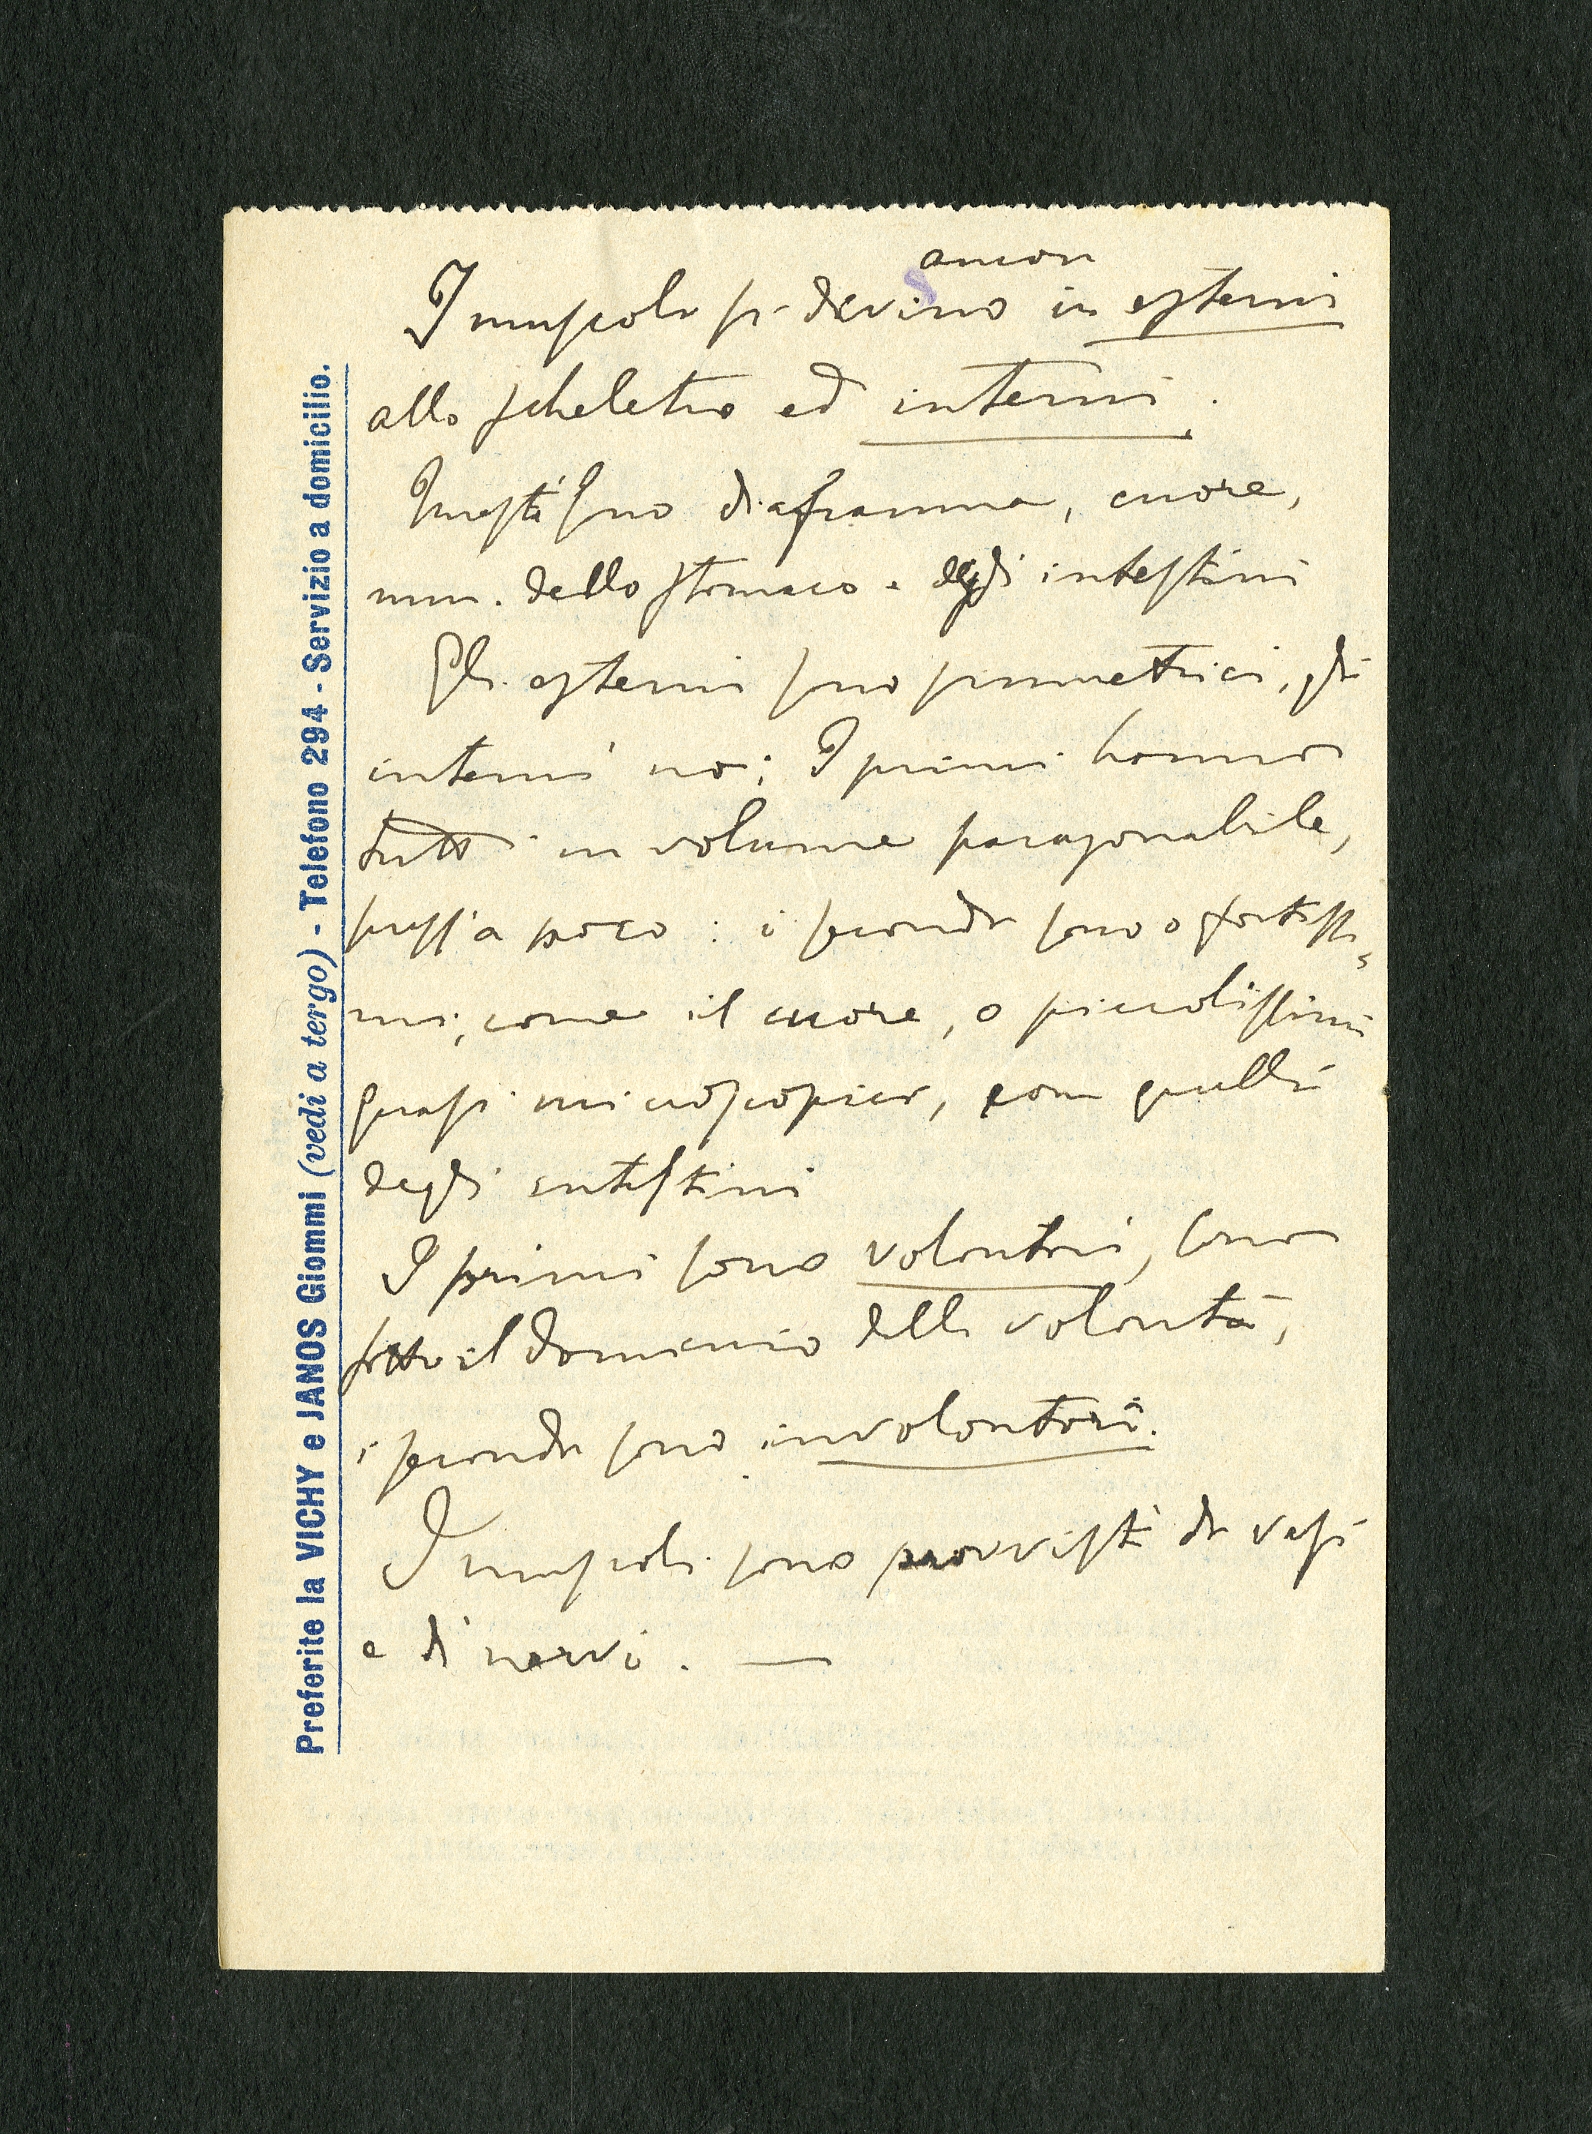 ancor
I muscoli si divino in esterni
allo scheletro ed interni.
Questi sono diaframma, cuore,
mm. dello stomaco e degli intestini
Gli esterni sono simmetrici, gli
interni no; I primi hanno
tutti un volume paragonabile,
press'a poco: i secondi sono o fortissi=
mi, come il cuore, o piccolissimi
quasi microscopici, come quelli
degli intestini
I primi sono volontari, sono
sotto il dominio della volontà,
i secondi sono involontari.
I muscoli sono provvisti di vasi
e di nervi. —
Preferite la VICHY e JANOS Giommi (vedi a tergo) - Telefono 294 - Servizio a domicilio.